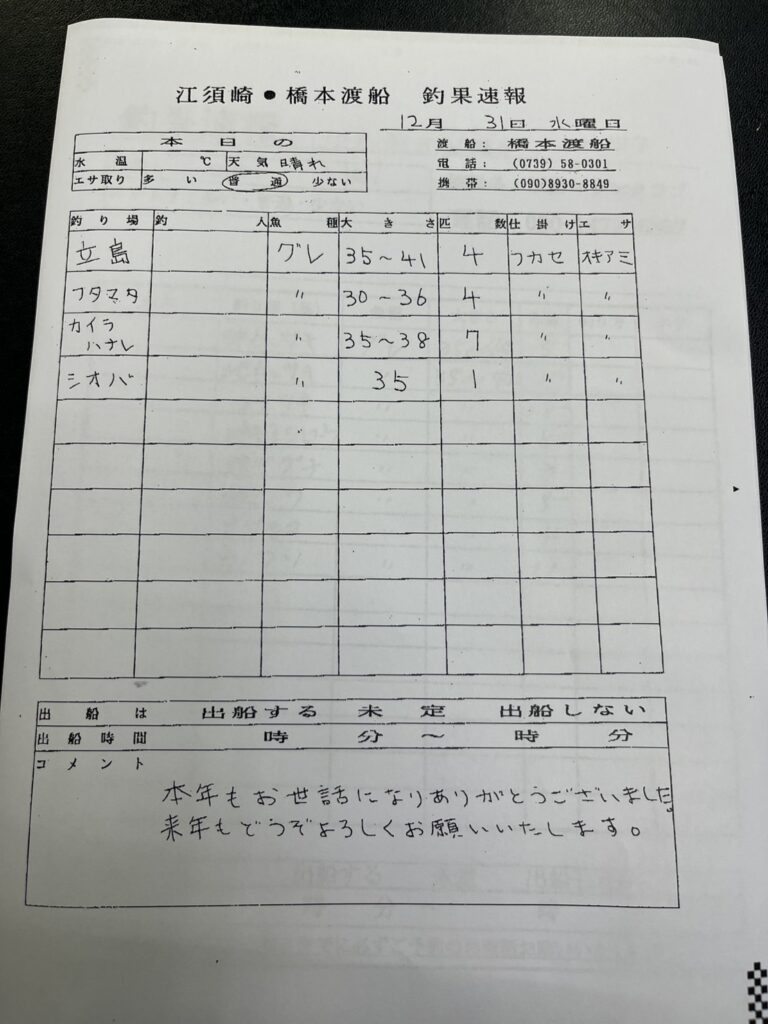 江須崎●橋本渡船 釣果速報
12月 31日 水曜日
本日の
水温 ℃ 天気 晴れ
エサ取り 多い 普通 少ない
渡船: 橋本渡船
電話: (0739) 58-0301
携帯: (090)8930-8849
釣り場 釣人 魚種 大きさ 匹数 仕掛け エサ
立島 グレ 35～41 4 フカセ オキアミ
フタマタ 〃 30～36 4 〃 〃
カイラハナレ 〃 35～38 7 〃 〃
シオバ 〃 35 1 〃 〃
出船は 出船する 未定 出船しない
出船時間 時 分～ 時 分
コメント
本年もお世話になりありがとうございました。
来年もどうぞよろしくお願いいたします。